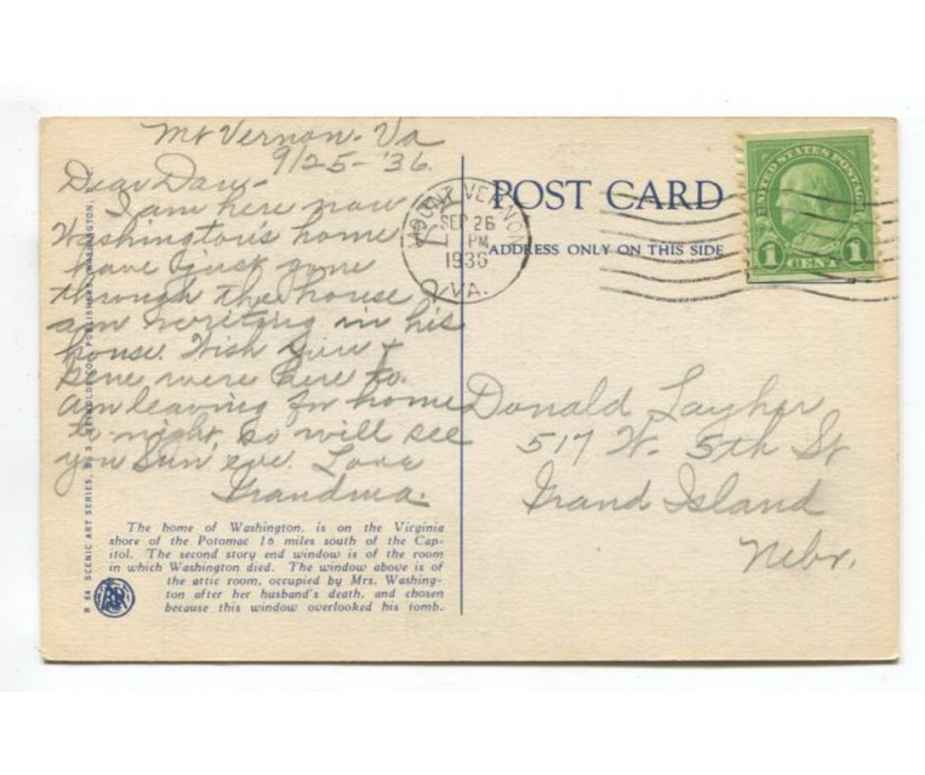 Mt Vernon - Va
9/25 - '36.
Dear Dan -
I am here now
Washington's home
have just gone
through the house I
am writing in his
house. Wish you +
Gene were here to.
am leaving for home
to-night, so will see
you Sun eve. Love
Grandma.
The home of Washington, is on the Virginia
shore of the Potomac 16 miles south of the Cap-
itol. The second story end window is of the room
in which Washington died. The window above is of
the attic room, occupied by Mrs. Washing-
ton after her husband's death, and chosen
because this window overlooked his tomb.
SCENIC ART SERIES, NO. 3, REYNOLDS CO., PUBLISHERS, WASHINGTON,
MOUNT VERNON
SEP 26
PM
1936
VA.
POST CARD
ADDRESS ONLY ON THIS SIDE
UNITED STATES POSTAGE
1 CENT 1
Donald Layher
517 W. 5th St
Grand Island
Nebr.